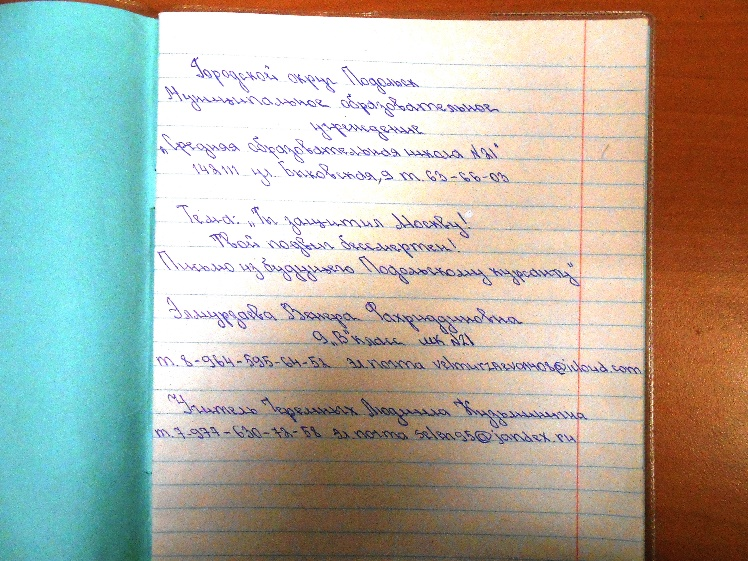 Городской округ Подольск
Муниципальное образовательное
учреждение
„Средная образовательная школа №21"
142111 ул. Быковская, 9 т. 63-66-03
Тема: „Ты защитил Москву!
Твой подвиг бессмертен!
Письмо из будущего Подольскому курсанту"
Элмурзаева Венера Фахриддиновна
9 „В" класс шк №21
т. 8-964-595-64-52 эл почта @icloud.com
Учитель Черемных Людмила Кузьминична
т. 7-977-630-72-58 эл почта selen95@jandex.ru